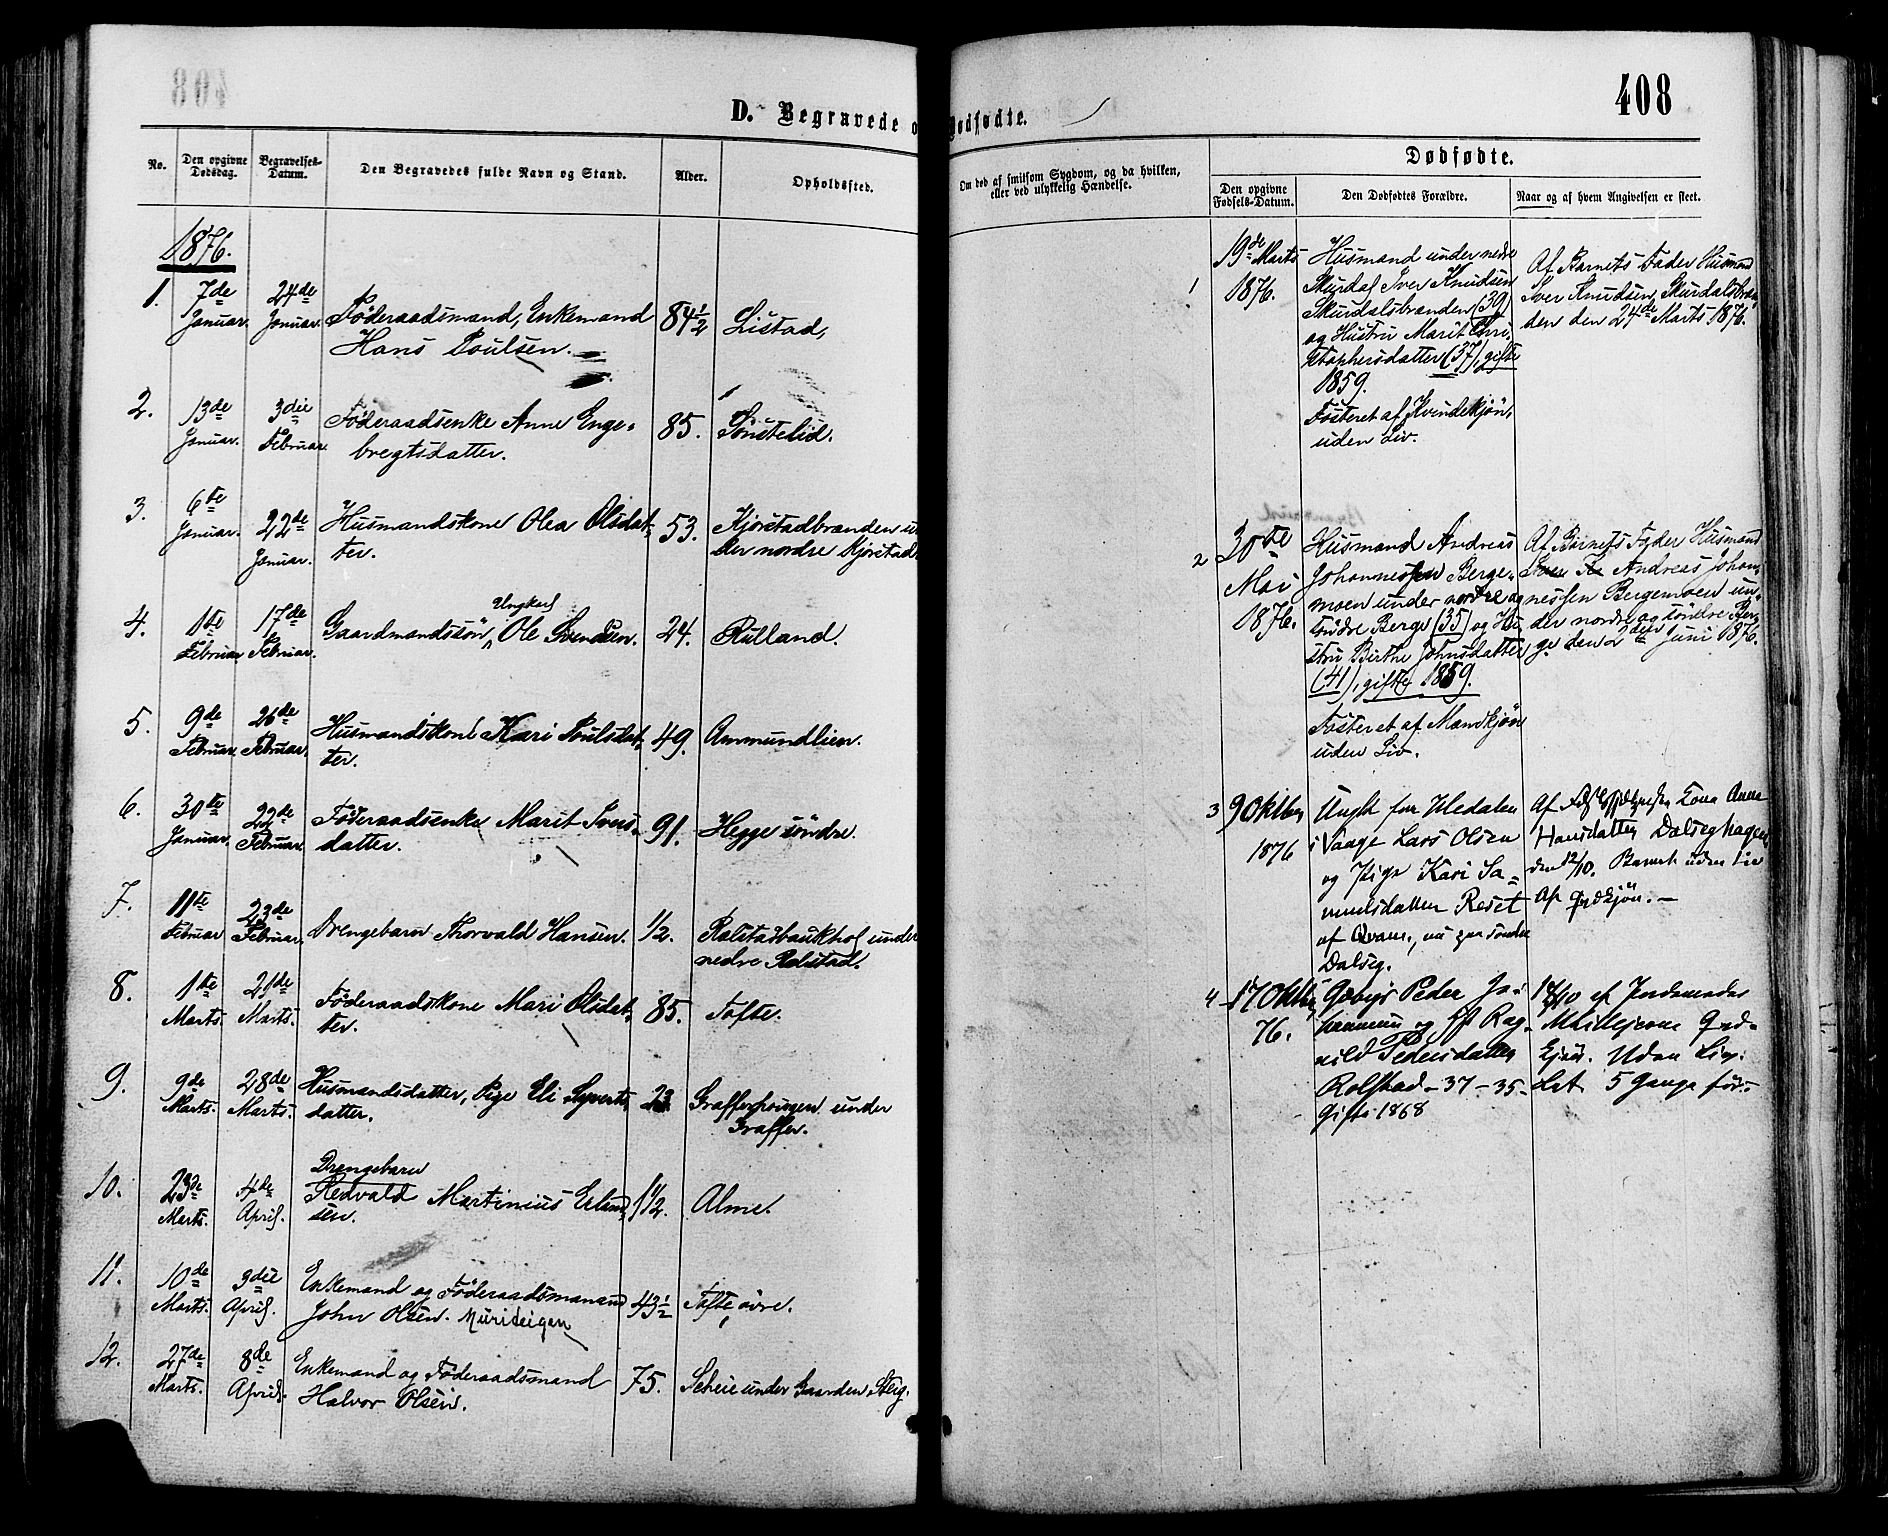 408
D. Begravede o
No.
Den opgivne Dødsdag.
Begravelses-Datum.
Den Begravedes fulde Navn og Stand.
Alder.
Opholdssted.
1876.
1. 7de Januar. 24de Januar. Föderaadsmand, Enkemand 84½ Listad,
Hans Poulsen.
2. 13de Januar. 3die Februar. Föderaadsenke Anne Enge- 85. Sönstelid.
bregtsdatter.
3. 6te Januar. 22de Januar. Husmandskone Olea Olsdat- 53. Kjörstadbranden un
ter. der nordre Kjörstad
4. 1ste Februar 17de Februar. Gaardmandssön, Ungkarl Ole Svendsen. 24. Rulland.
5. 9de Februar. 26de Februar. Husmandskone Kari Poulsdat- 49. Ammundlien.
ter.
6. 30te Januar. 22de Februar. Föderaadsenke Marit Ivers- 91. Hegge söndre.
datter.
7. 11te Februar 23de Februar. Drengebarn Thorvald Hansen. 1/2. Rolstadbaukhol under
nedre Rolstad.
8. 1ste Marts. 21de Marts. Föderaadskone Mari Olsdat- 85. Tofte.
ter.
9. 9de Marts. 28de Marts. Husmandsdatter, Pige Eli Syverts- 23. under
datter. Graffer.
10. 23de Marts. 4de April. Drengebarn
Redvald Martinius Erland- 1½. Alme.
sen.
11. 10de Marts. 3die April. Enkemand og Föderaadsmand 43½ Tofte övre.
John Olsen. Murideigen
12. 27de Marts. 8de April. Enkemand og Föderaadsmand 75. Scheie under Gaarden Steig.
Halvor Olsen.
408
Dødfødte.
Om død af smitsom Sygdom, og da hvilken,
eller ved ulykkelig Hændelse.
Dødfødte.
Den opgivne Fødsels-Datum.
Den Dødfødtes Forældre.
Naar og af hvem Angivelsen er skeet.
1 19de Marts 1876. Husmand under nedre
Skurdal Iver Knudsen
Skurdalsbranden (39)
og Hustru Marit Chri-
stophersdatter (37), gifte
1859.
Fosteret af Kvindekjön,
uden Liv.
Af Barnets Fader Husmand
Iver Knudsen Skurdalsbran-
den den 24de Marts 1876.
2 30te Mai 1876. Husmand Andreas
Johannessen Berge-
moen under nordre og
söndre Berge (35) og Hu-
stru Birthe Johnsdatter
(41), gifte 1859.
Fosteret af Mandkjön
uden Liv.
Af Barnets Fader Husmand
Andreas Johan-
nessen Bergemoen un-
der nordre og söndre Ber-
ge den 2den Juni 1876.
3 9 Oktbr 1876 Ungk
i Vaage Lars Olsen
og Pige Kari Sa-
muelsdatter Reset
af Qvam, nu paa söndre
Dalseg.
Af Kona Anne
Hansdatter Dalseghagen
den 12/10. Barnet uden Liv
Af Qvdkjön. —
4 17 Oktbr 76. Peder Jo-
hannesen og Rag-
nild Pedersdatter
Rolstad – 37 – 35 –
Gift 1868
af Jordemoder
Qvd-
kjön. Uden Liv.
5 Gange